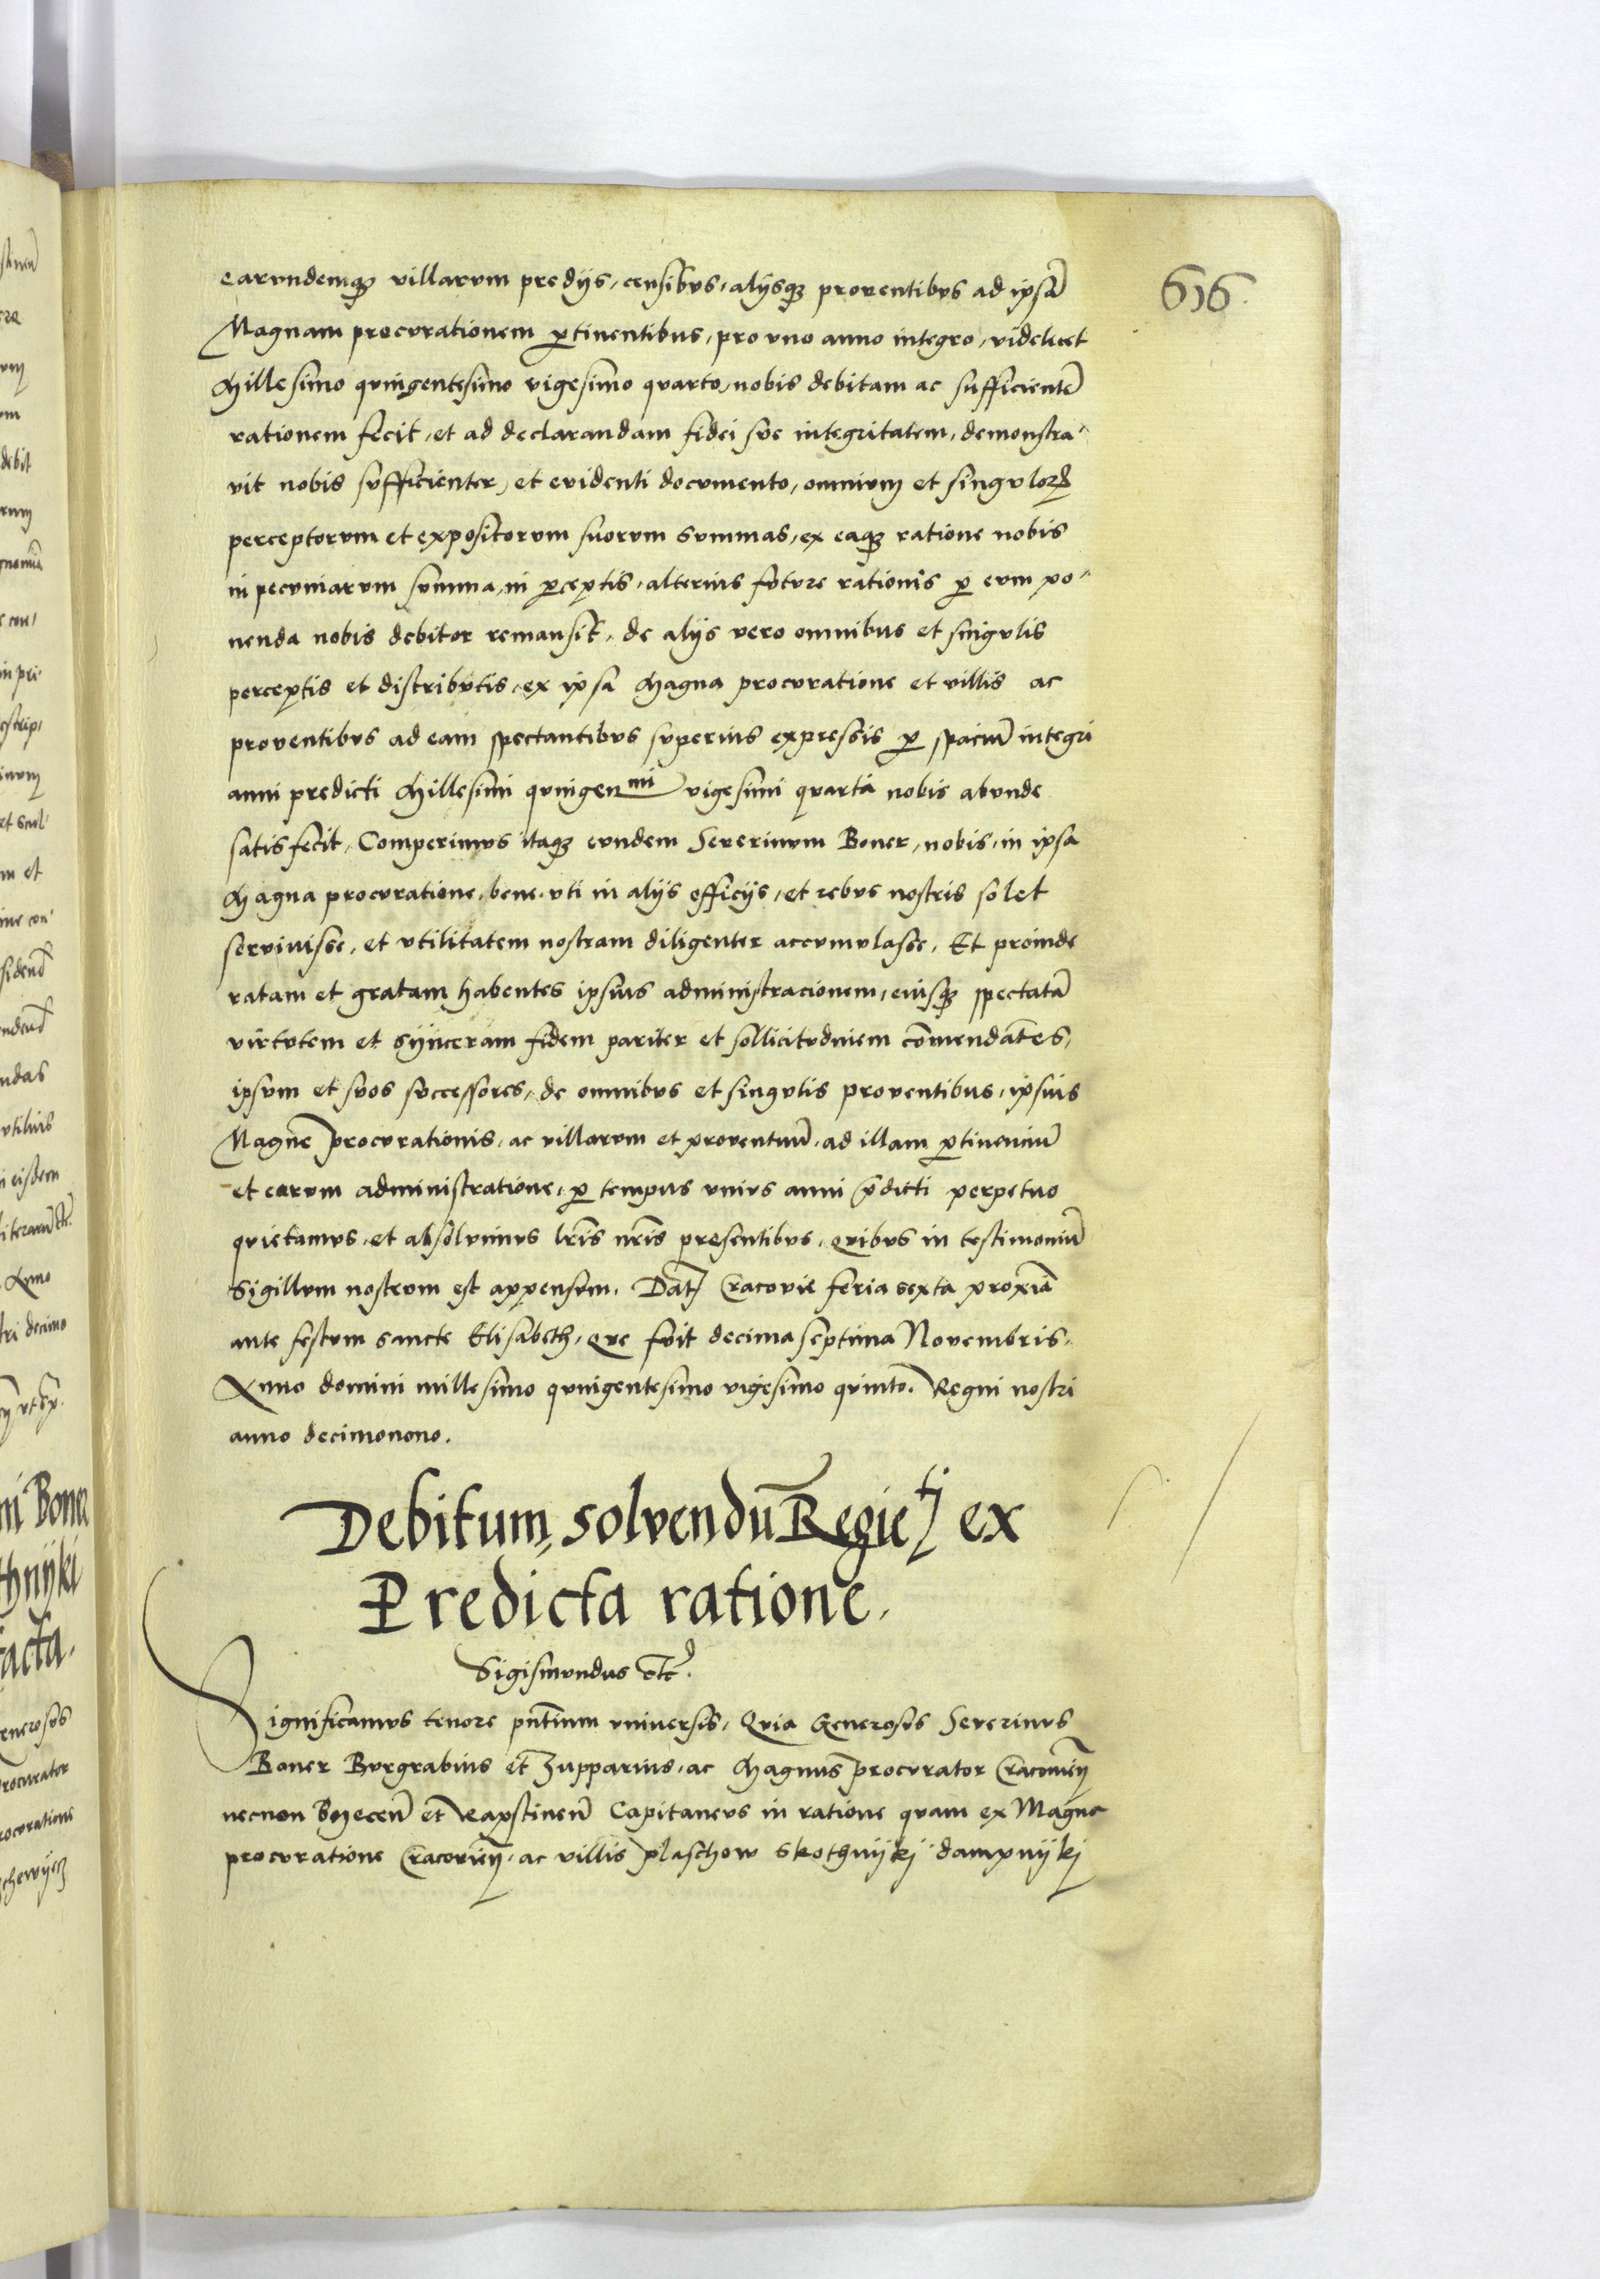 616.
earvndemqꝫ villarvm predijs, censibvs, alijsqꝫ proventibvs ad ipsā
Magnam procvrationem ꝑtinentibus, pro vno anno integro, videlicet
Millesimo qvingentesimo vigesimo qvarto, nobis debitam ac sufficientē
rationem fecit, et ad declarandam fidei sve integritatem, demonstra-
vit nobis svfficienter, et evidenti docvmento, omnivm et singvloꝝ
perceptorvm et expositorvm suorvm svmmas, ex eaqꝫ ratione nobis
in pecvniarvm svmma, in ꝑceptis, alterius fvtvre rationis ꝑ evm po-
nenda nobis debitor remansit, de alijs vero omnibus et singvlis
perceptis et distribvtis, ex ipsa Magna procvratione et villis ac
proventibvs ad eam spectantibvs svperius expressis ꝑ spaciū integri
anni predicti Millesimi qvingenmi vigesimi qvarti nobis abvnde
satisfecit, Comperimvs itaqꝫ evndem Severinvm Boner, nobis, in ipsa
Magna procvratione, bene, vti in alijs officijs, et rebvs nostris solet
servivisse, et vtilitatem nostram diligenter accvmvlasse, Et proinde
ratam et gratam habentes ipsius administracionem, eivsqꝫ spectatā
virtvtem et synceram fidem pariter et sollicitvdinem cōmendātes,
ipsvm et svos svccessores, de omnibvs et singvlis proventibus, ipsius
Magne procvrationis, ac villarvm et proventuū, ad illam ꝑtinenciū
et earvm administratione, ꝑ tempus vnivs anni p̄dicti perpetvo
qvietamvs, et absolvimvs lr̄is nr̄is presentibvs, qvibvs in testimoniū
Sigillvm nostrvm est appensvm. Datꝭ Cracovie feria sexta proxīa
ante festvm sancte Elisabeth, qve fvit decima septima Novembris.
Anno domini millesimo qvingentesimo vigesimo qvinto. Regni nostri
anno decimonono.
Debitum, solvendū Regie tj ex
Predicta ratione.
Sigismvndus etc̄.
Significamvs tenore pn̄tium vniversis, Qvia Generosvs Severinvs
Boner Bvrgrabius et Zupparius, ac Magnus procvrator Cracovień
necnon Byecen̄ et Rapstinen̄ Capitanevs in ratione qvam ex Magna
procvratione Cracovień, ac villis plaschow skothnijkj dampnijkj